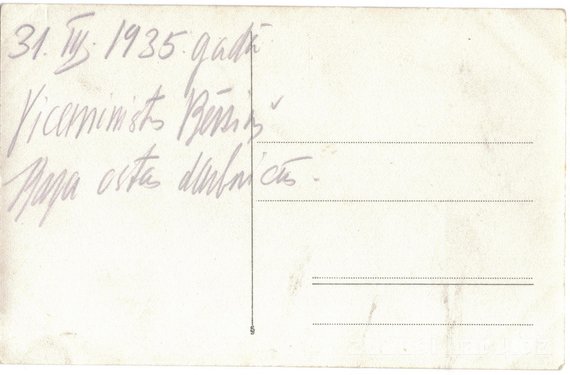 31. III. 1935. gadā
Viceministrs Bērziņš
ostas darbnīcās.